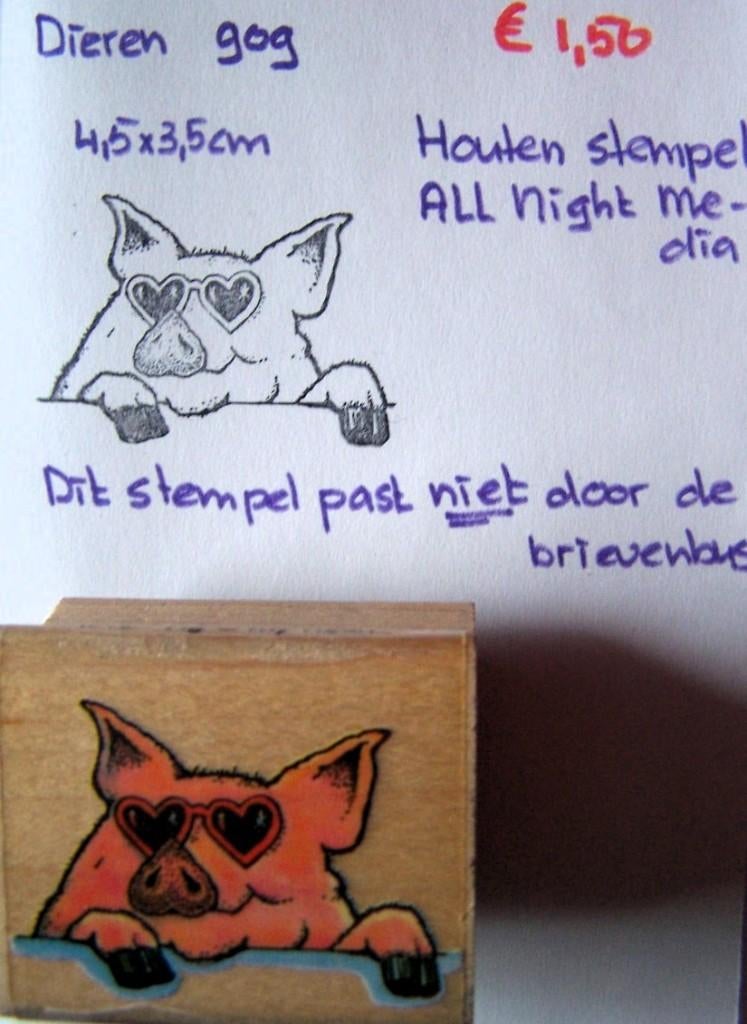 Dieren gog € 1,50
4,5x3,5cm
Houten stempel
ALL Night Me-
dia
Dit stempel past niet door de
brievenbus